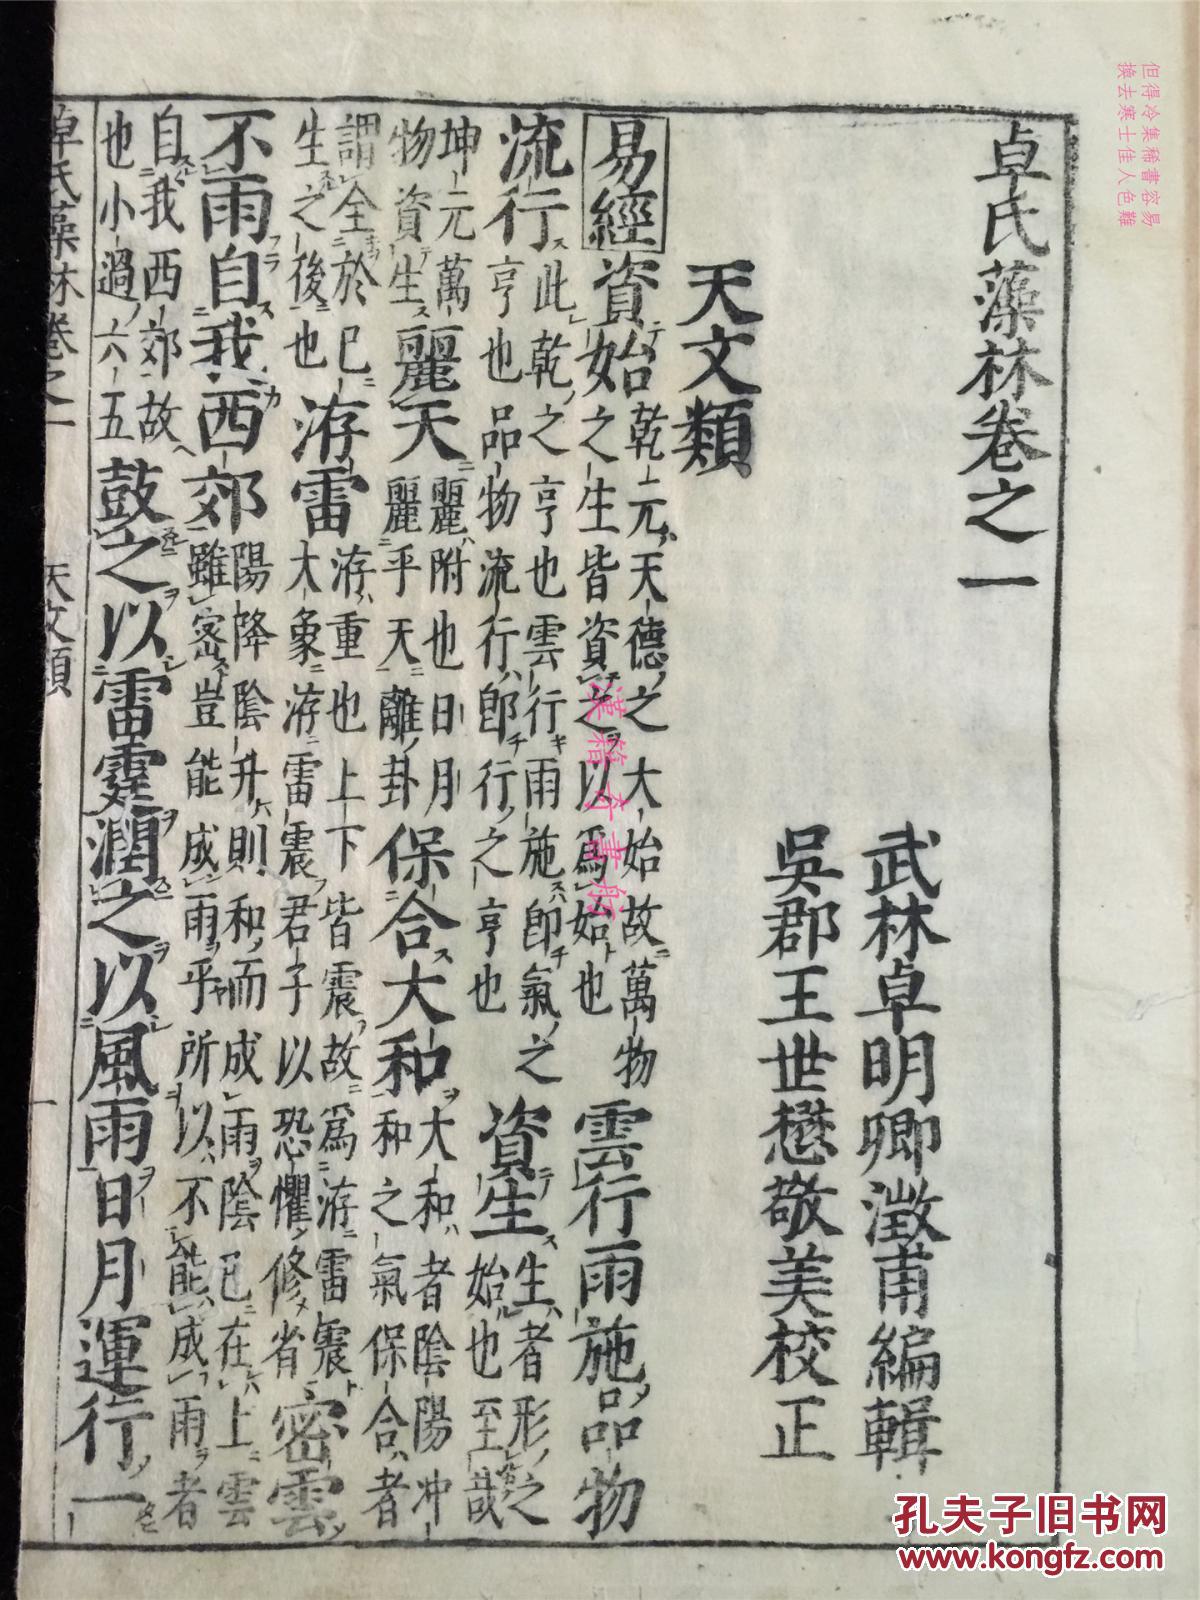 卓氏藻林卷之一
武林卓明卿澂甫編輯
吳郡王世懋敬美校正
天文類
易經資始乾元天德之大始故萬物之生皆資之以爲始也雲行雨施品物
流行此乾之亨也雲行雨施即氣之亨也品物流行即行之亨也資生生者形之始也至哉
坤元萬物資生麗天麗附也日月麗乎天離卦保合大和大和者陰陽冲和之氣保合者
謂全於已生之後也洊雷洊重也上下皆震故爲洊雷震大象洊雷震君子以恐懼修省密雲
不雨自我西郊陽降陰升則和而成雨陰已在上雲雖密豈能成雨乎所以不能成雨者
自我西郊故也小過六五鼓之以雷霆潤之以風雨日月運行一
卓氏藻林卷之一
天文類
一
但得冷集稀書容易
換去寒士佳人色難
漢籍奇書舫
孔夫子旧书网
www.kongfz.com